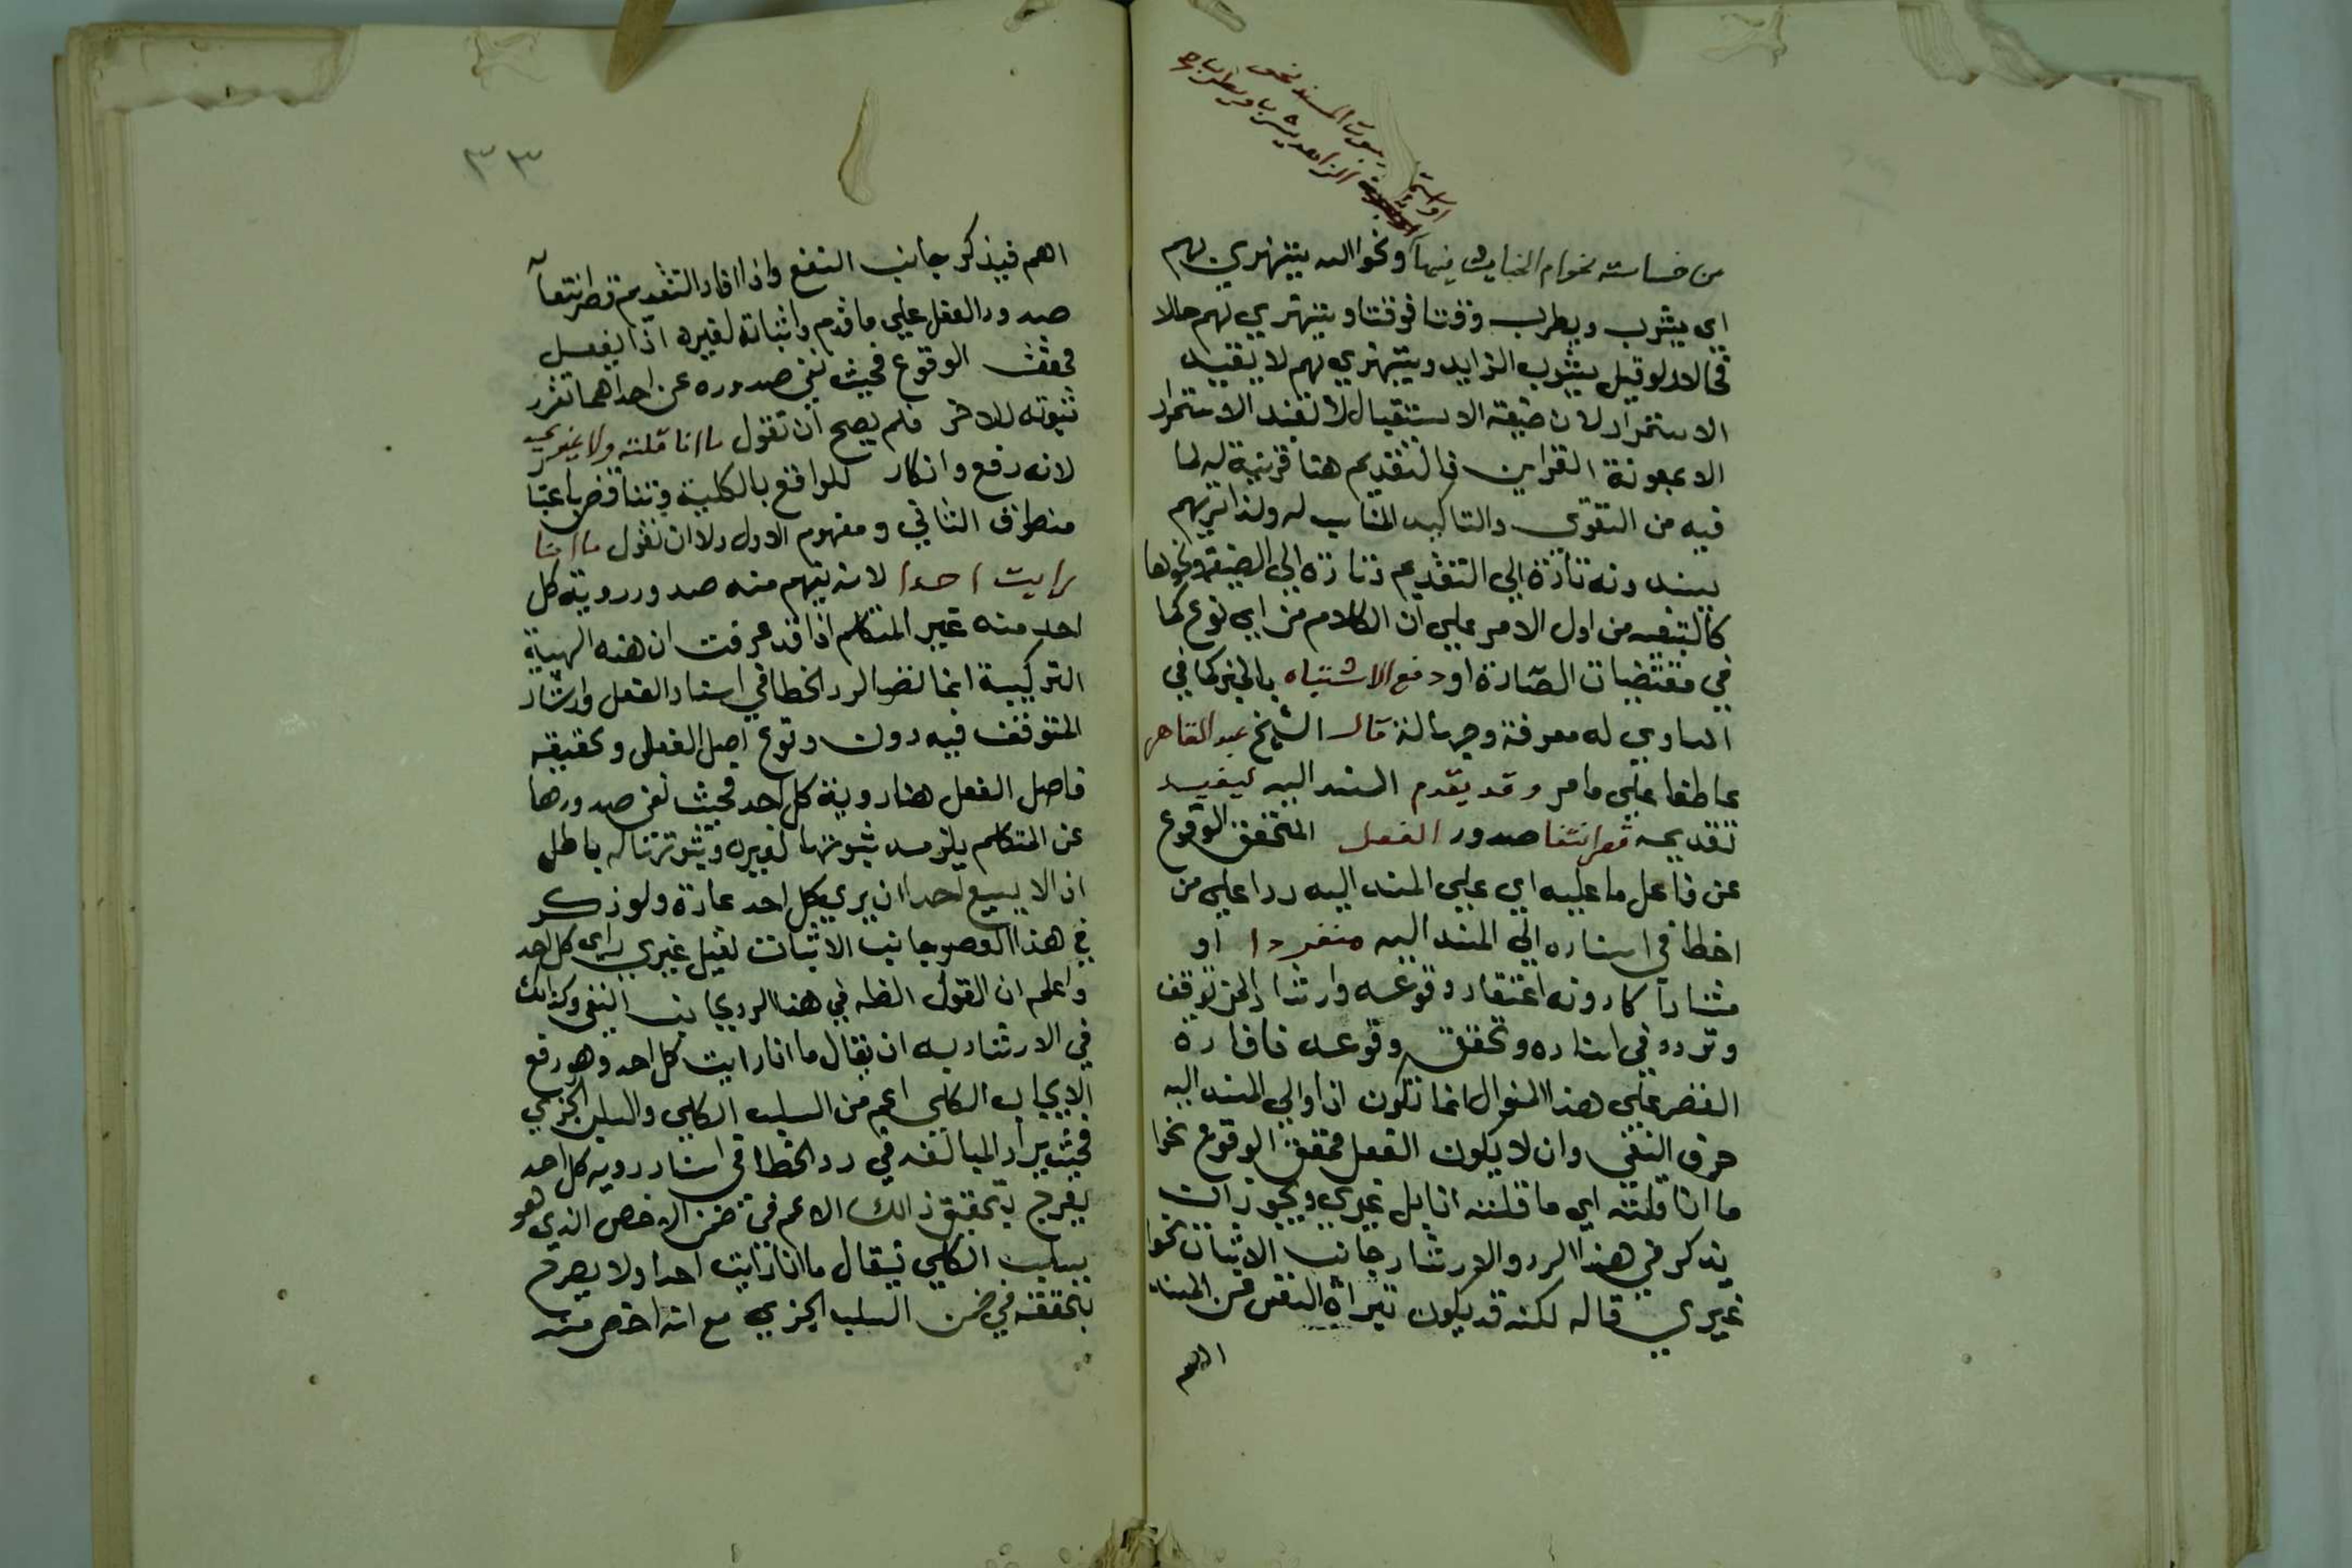 نحو
الزاهد يشرب ويطرب
من خساسته نحو ام الخبايث فيها ونحو الله يستهزئ بهم
اي يشرب ويطرب وقتا فوقتا ويستهزي بهم حالا
فحالا ولو قيل يشرب الزايد ويستهزي بهم لا يفيد
الاستمرار لان صيغة الاستقبال لا تفيد الاستمرار
الا بمعونة القراين فالتقديم هنا قرينة لها لما
فيه من التقوي والتاكيد المناسب له ولذا تريهم
يسندونه تارة الي التقديم وتارة الي الصيغة ونحوها
كالتنبيه من اول الامر علي ان الكلام من اي نوع كما
في مقتضيات الصدارة او دفع الاشتباه بالخبر كما في
المساوي له معرفة وجهالة قال الشيخ عبد القاهر
عاطفا علي ما مر وقد يقدم المسند اليه ليفيد
تقديمه قصر انتفا صدور الفعل المتحقق الوقوع
عن فاعل ما عليه اي علي المسند اليه ردا علي من
اخطا في اسناده الي المسند اليه منفردا او
مشاركا دونه اعتقاد وقوعه وارشادا لمن توقف
وتردد في اسناده وتحقق وقوعه فافادة
القصر علي هذا المنوال انما تكون اذا ولي المسند اليه
حرف النفي وان لا يكون الفعل محقق الوقوع نحو
ما انا قلته اي ما قلته انا بل غيري ويجوز ان
يذكر في هذا الرد والارشاد جانب الاثبات نحو
غيري قاله لكنه قد يكون تبراة النفس من المسند
اهم
٣٣
اهم فيذكر جانب النفي واذا افاد التقديم قصر انتفا
صدور الفعل علي ما قدم واثباته لغيره اذ الفعل
محقق الوقوع فحيث نفي صدوره عن احداهما تقرر
ثبوته للاخر فلم يصح ان تقول ما انا قلته ولا غيري
لانه رفع وانكار للواقع بالكلية وتناقض باعتبا
منطوق الثاني ومفهوم الاول ولا ان تقول ما انا
رايت احدا لانه يفهم منه صدور روية كل
احد منه غير المتكلم اذ قد عرفت ان هذه الهيية
التركيبية انما لقصر الرد الخطا في اسناد الفعل وارشاد
المتوقف فيه دون وقوع اصل الفعل وتحقيقه
فاصل الفعل هنا روية كل احد فحيث نفي صدورها
عن المتكلم يلزمه ثبوتها لغيره وثبوتها له باطل
اذ لا يسع احدا ان يري كل احد عادة ولو ذكر
في هذا القصر جانب الاثبات لقيل غيري راي كل احد
واعلم ان القول الظ في هذا الرد بجانب النفي وكذلك
في الارشاد به ان يقال ما انا رايت كل احد وهو رفع
الايجاب الكلي اعم من السلب الكلي والسلب الجزي
فحيث يراد المبالغة في رد الخطا في اسناد روية كل احد
يصرح بتحقق ذالك الاعم في ضمن الاخص الذي هو
سلب الكلي فيقال ما انا رايت احدا ولا يصرح
بتحققه في ضمن السلب الجزي مع انه اخص منه